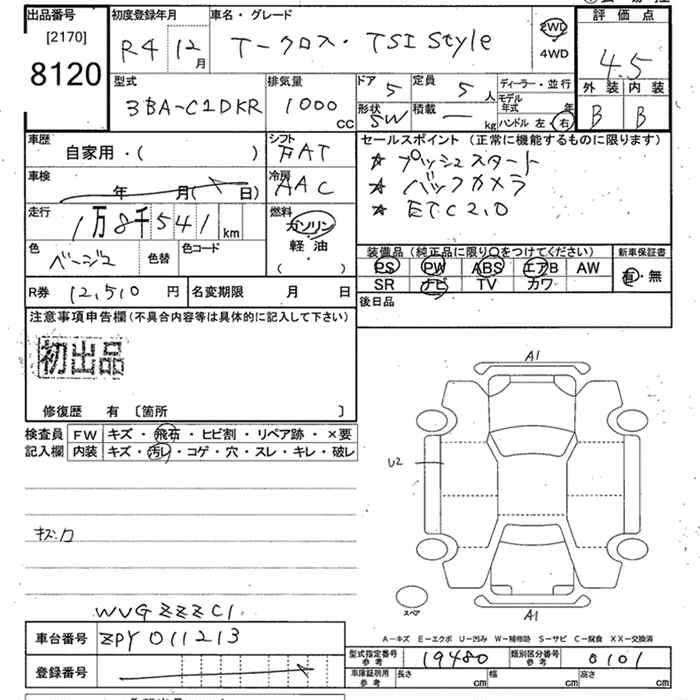 出品番号 初度登録年月 車名・グレード 評価点
[2170]
8120
R4 12月 T-クロス・TSI Style 2WD 4WD 4.5
型式 排気量 ドア 定員 ディーラー・並行 外装 内装
3BA-C1DKR 1000cc 5 5人 モデル年式 年 B B
形状 積載 ハンドル 左・右
SW — kg
車歴 シフト セールスポイント (正常に機能するものに限ります)
自家用・( ) FAT ★ プッシュスタート
車検 冷房 ★ バックカメラ
年 月( 日) AAC ★ ETC2.0
走行 燃料
1万8千541km ガソリン・軽油
( )
色 色替 色コード 装備品 (純正品に限り○をつけてください) 新車保証書
ベージュ PS PW ABS エアB AW 有・無
R券 12,510 円 名変期限 月 日 SR ナビ TV カワ
注意事項申告欄(不具合内容等は具体的に記入して下さい) 後日品
初出品
修復歴 有 〔箇所 〕
検査員 FW キズ・飛石・ヒビ割・リペア跡・×要
記入欄 内装 キズ・汚レ・コゲ・穴・スレ・キレ・破レ
A1
U2
キズ力
スペア
A1
WVGZZZC1
車台番号 ZPY011213
登録番号
A-キズ E-エクボ U-凹み W-補修跡 S-サビ C-腐食 XX-交換済
型式指定番号 参考 19480 類別区分番号 参考 0101
車庫証明用 参考 長さ cm 幅 cm 高さ cm